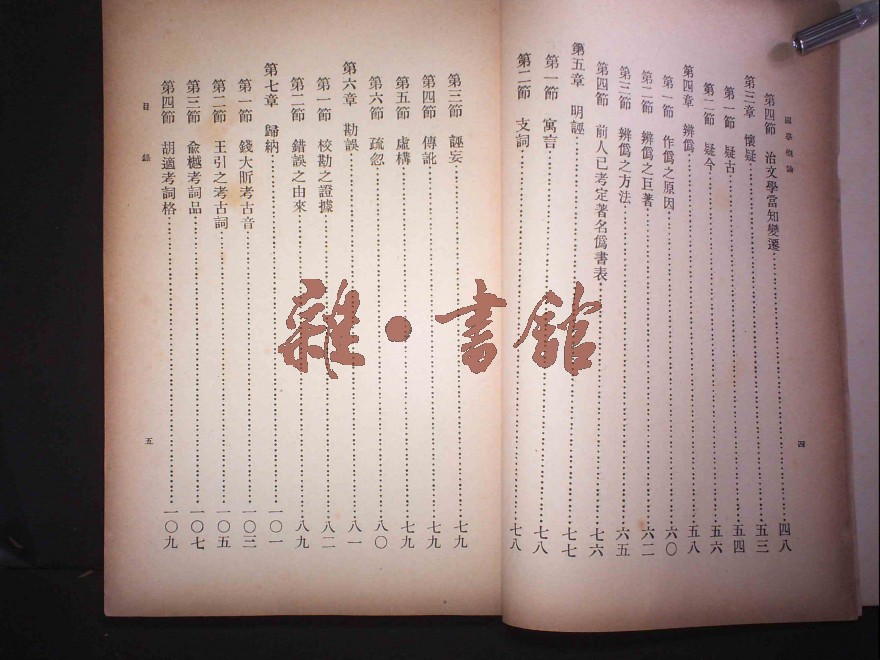 國學概論
第四節 治文學當知變遷……四八
第三章 懷疑……五三
第一節 疑古……五四
第二節 疑今……五六
第四章 辨僞……五八
第一節 作僞之原因……六〇
第二節 辨僞之巨著……六二
第三節 辨僞之方法……六五
第四節 前人已考定著名僞書表……七六
第五章 明誣……七七
第一節 寓言……七八
第二節 支詞……七八
四
第三節 誣妄……七九
第四節 傳訛……七九
第五節 虛構……七九
第六節 疏忽……八〇
第六章 勘誤……八一
第一節 校勘之證據……八二
第二節 錯誤之由來……八九
第七章 歸納……一〇一
第一節 錢大昕考古音……一〇三
第二節 王引之考古詞……一〇五
第三節 俞樾考詞品……一〇七
第四節 胡適考詞格……一〇九
目錄
五
雜·書館